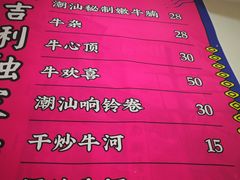 潮汕秘制嫩牛腩 28
牛杂 28
牛心顶 30
牛欢喜 50
潮汕响铃卷 30
干炒牛河 15
吉利独